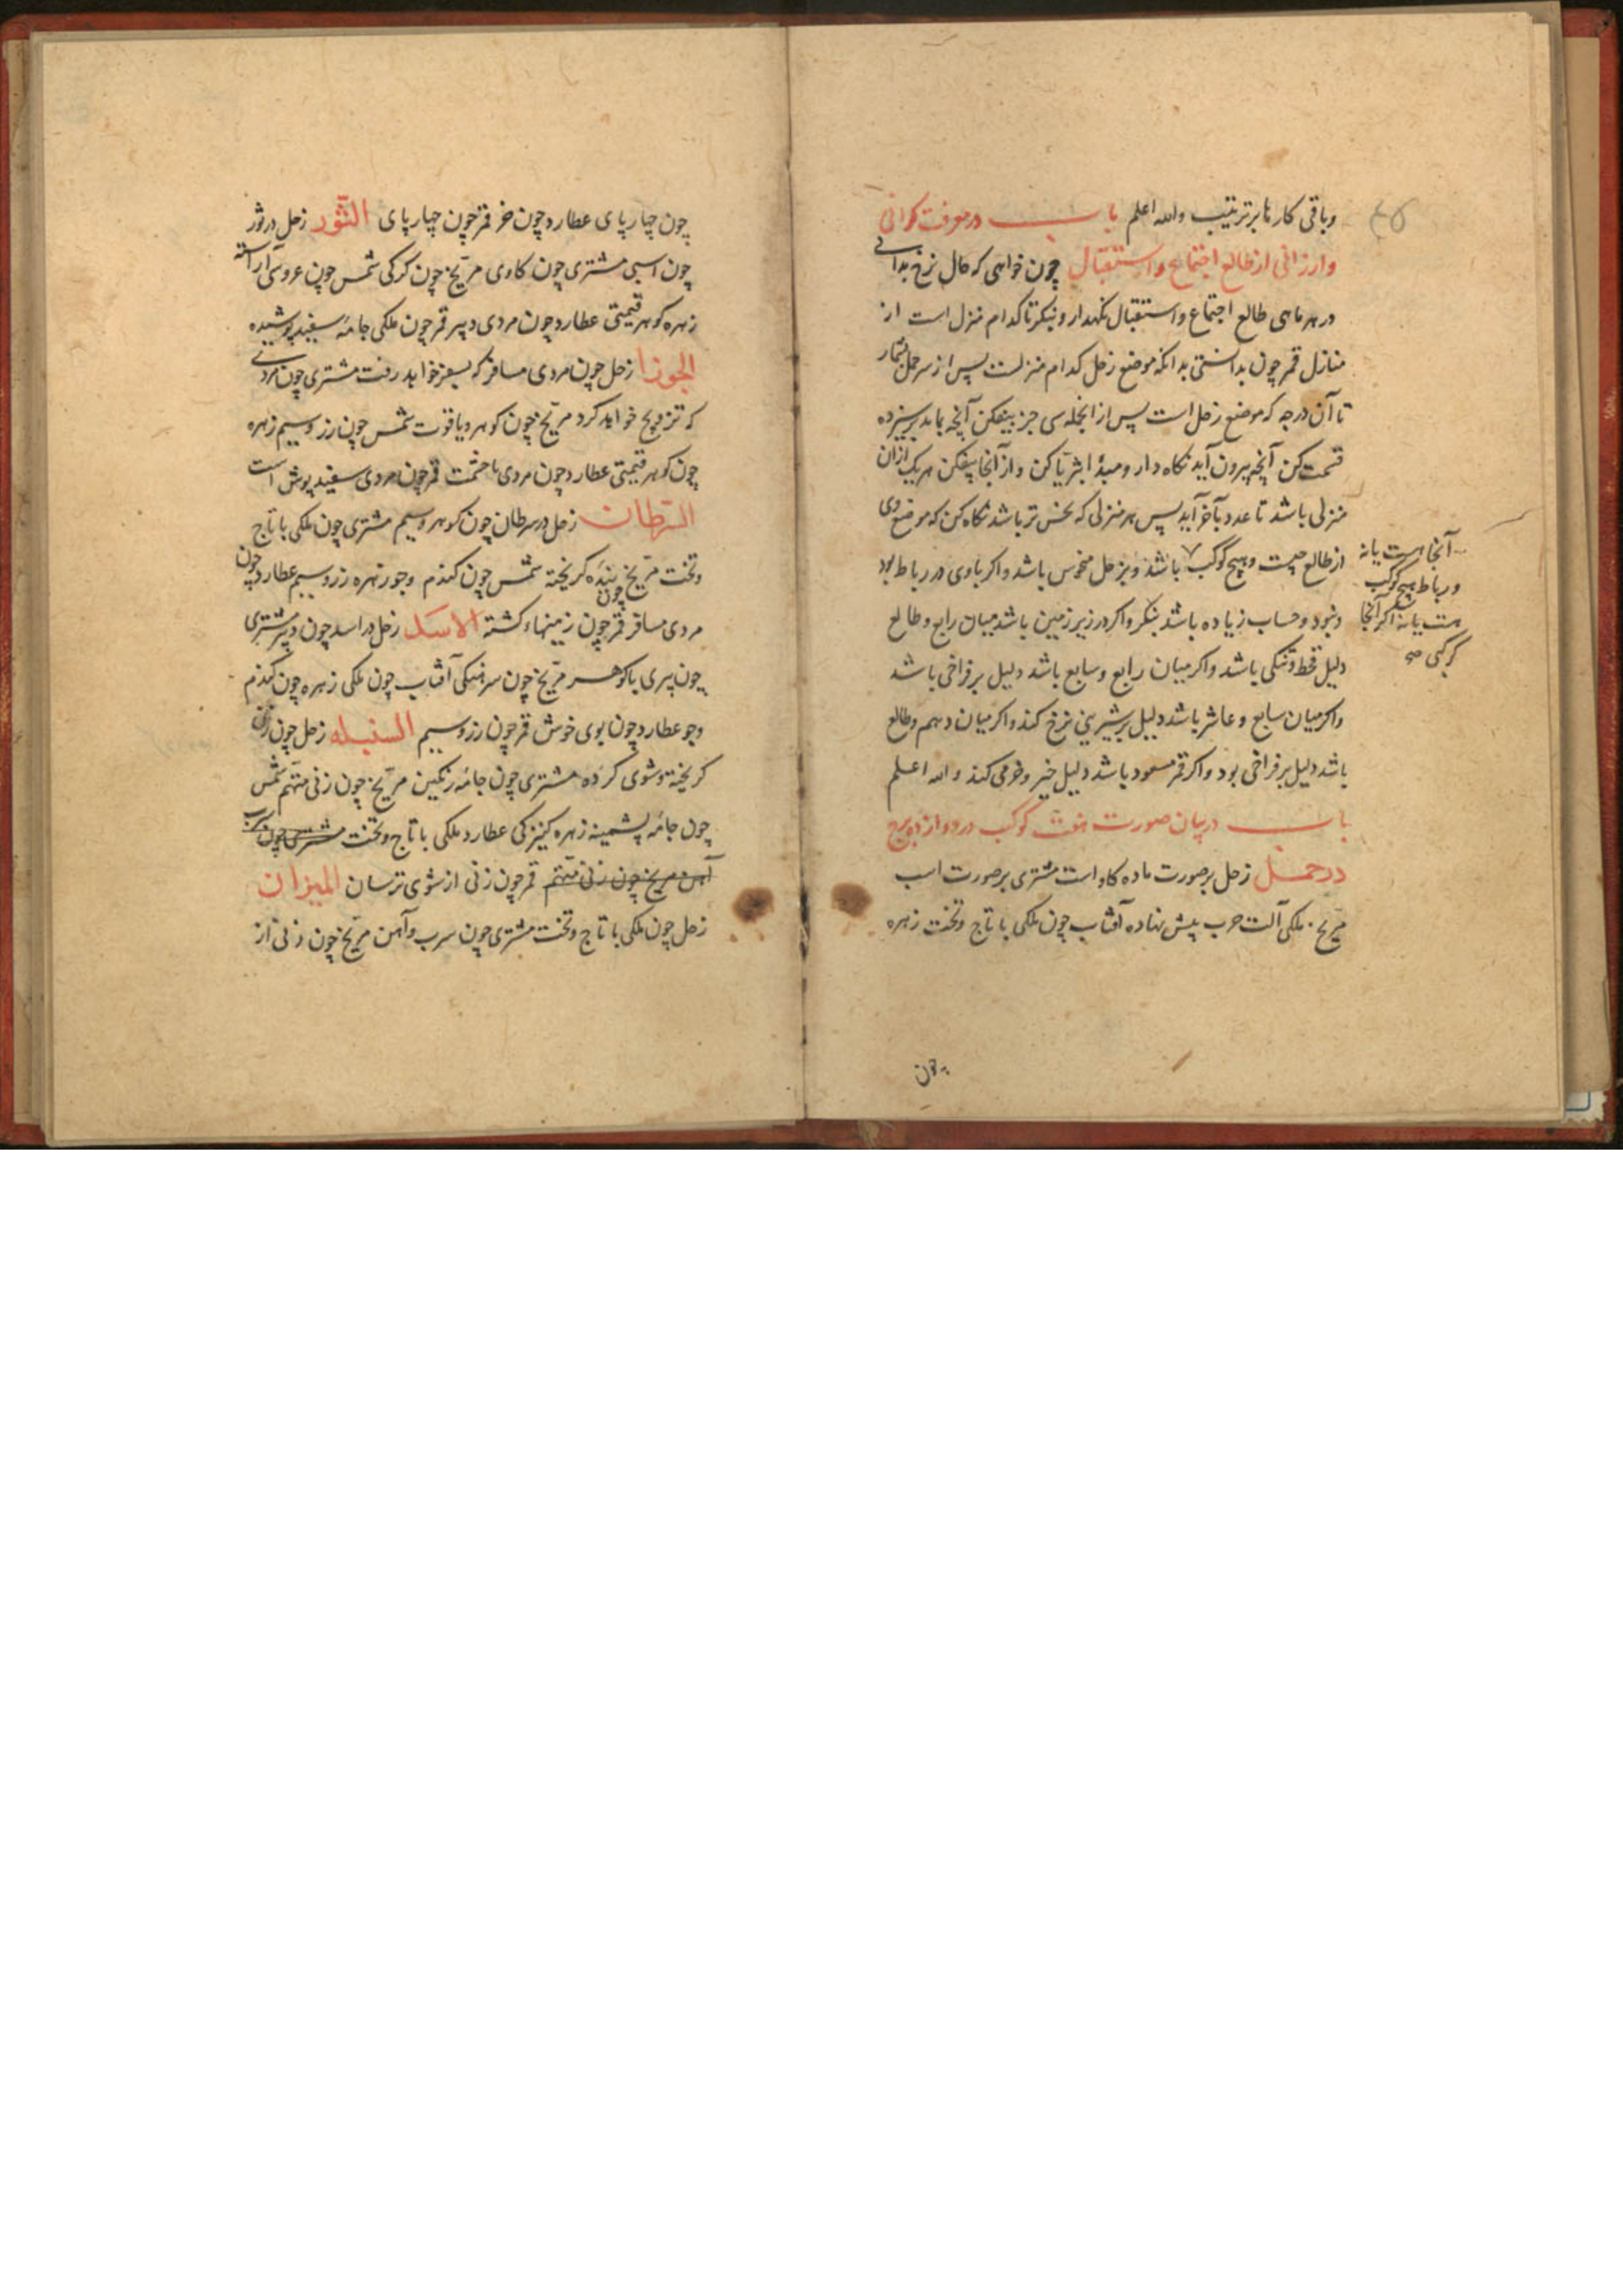 وباقی کارها برترتیب والله اعلم باب در معرفت کرانی
وارزانی از طالع اجتماع واستقبال چون خواهی که حال نرخ بدانی
در هر ماهی طالع اجتماع واستقبال نکهدار و بنکر تا کدام منزل است از
منازل قمر چون بدانستی بدانکه موضع زحل کدام منزلست پس از سر حمل بشمار
تا آن درجه که موضع زحل است پس از انجمله سی جز بیفکن آنچه بماند بر سیزده
قسمت کن آنچه بیرون آید نکاه دار ومبدأ اثریا کن و از آنجا بیفکن هر یک ازان
منزلی باشد تا عدد بآخر آید پس هر منزلی که نحس تر باشد نکاه کن که موضع وی
از طالع چیست وهیچ کوکب ۷ باشد وبزحل منحوس باشد واکر باوی در رباط بود
آنجا هست یا نه
ورباط هیچ کوکب
هست یا نه اکر آنجا
کوکبی صح
ونبود وحساب زیاده باشد بنکر واکر در زیر زمین باشد میان رابع وطالع
دلیل قحط وتنکی باشد واکر میان رابع وسابع باشد دلیل بر فراخی باشد
واکر میان سابع وعاشر باشد دلیل بر شیرینی نرخ کند واکر میان دهم وطالع
باشد دلیل بر فراخی بود واکر قمر مسعود باشد دلیل خیر وخرمی کند والله اعلم
باب در بیان صورت هفت کوکب در دوازده برج
در حمل زحل بر صورت ماده کاو است مشتری بر صورت اسب
مریخ ملکی آلت حرب پیش نهاده آفتاب چون ملکی با تاج وتخت زهره
چون
چون چهارپای عطارد چون خر قمر چون چهارپای الثور زحل در ثور
چون اسبی مشتری چون کاوی مریخ چون کرکی شمس چون عروسی آراسته
زهره کوهر قیمتی عطارد چون مردی دبیر قمر چون ملکی جامه سفید پوشیده
الجوزا زحل چون مردی مسافر که بسفر خواهد رفت مشتری چون مردی
که تزویج خواهد کرد مریخ چون کوهر و یاقوت شمس چون زر وسیم زهره
چون کوهر قیمتی عطارد چون مردی با حشمت قمر چون مردی سفید پوش است
السرطان زحل در سرطان چون کوهر وسیم مشتری چون ملکی با تاج
وتخت مریخ چون بنده کریخته شمس چون کندم وجو زهره زر وسیم عطارد چون
مردی مسافر قمر چون زمینهاء کشته الاسد زحل در اسد چون دبیر مشتری
چون پیری با کوهر مریخ چون سرهنکی آفتاب چون ملکی زهره چون کندم
وجو عطارد چون بوی خوش قمر چون زر وسیم السنبله زحل چون زنی
کریخته وشوی کرده مشتری چون جامه رنکین مریخ چون زنی متهم شمس
چون جامه پشمینه زهره کنیزکی عطارد ملکی با تاج وتخت مشتری چون سرب
آهن مریخ چون زنی متهم قمر چون زنی از شوی ترسان المیزان
زحل چون ملکی با تاج وتخت مشتری چون سرب وآهن مریخ چون زنی از